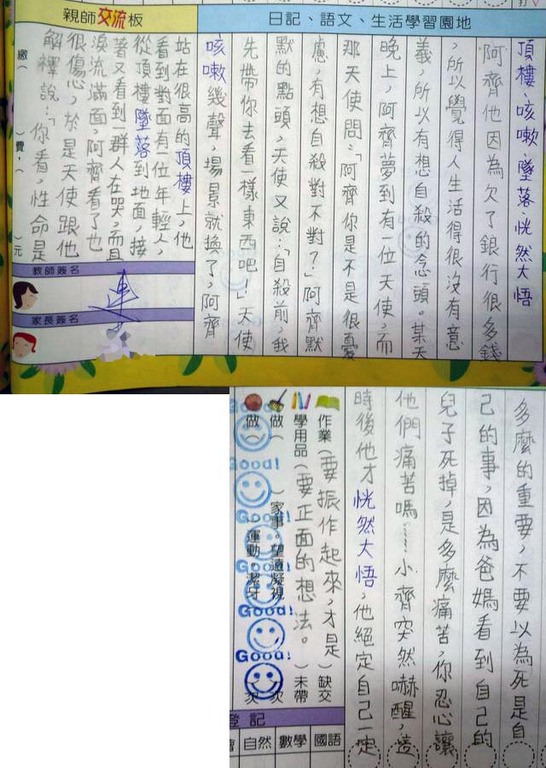 親師交流板
日記、語文、生活學習園地
頂樓、咳嗽、墜落、恍然大悟
阿齊他因為欠了銀行很多錢
,所以覺得人生活得很沒有意
義,所以有想自殺的念頭。某天
晚上,阿齊夢到有一位天使,而
那天使問:「阿齊你是不是很憂
慮,有想自殺對不對?」阿齊默
默的點頭,天使又說:「自殺前,我
先帶你去看一樣東西吧!」天使
咳嗽幾聲,場景就換了,阿齊
站在很高的頂樓上,他
看到對面有一位年輕人,
從頂樓墜落到地面,接
著又看到一群人在哭,而且
淚流滿面,阿齊看了也
很傷心,於是天使跟他
解釋說:「你看,性命是
繳( )費,( )元
教師簽名
家長簽名
多麼的重要,不要以為死是自
己的事,因為爸媽看到自己的
兒子死掉,是多麼痛苦,你忍心讓
他們痛苦嗎……小齊突然嚇醒,這
時後他才恍然大悟,他絕定自己一定
作業(要振作起來,才是)缺交
學用品(要正面的想法。)未帶
做( )家事、望遠凝視 次
做( )運動、潔牙 次
Good!
Good!
Good!
Good!
Good!
登記
自然
數學
國語